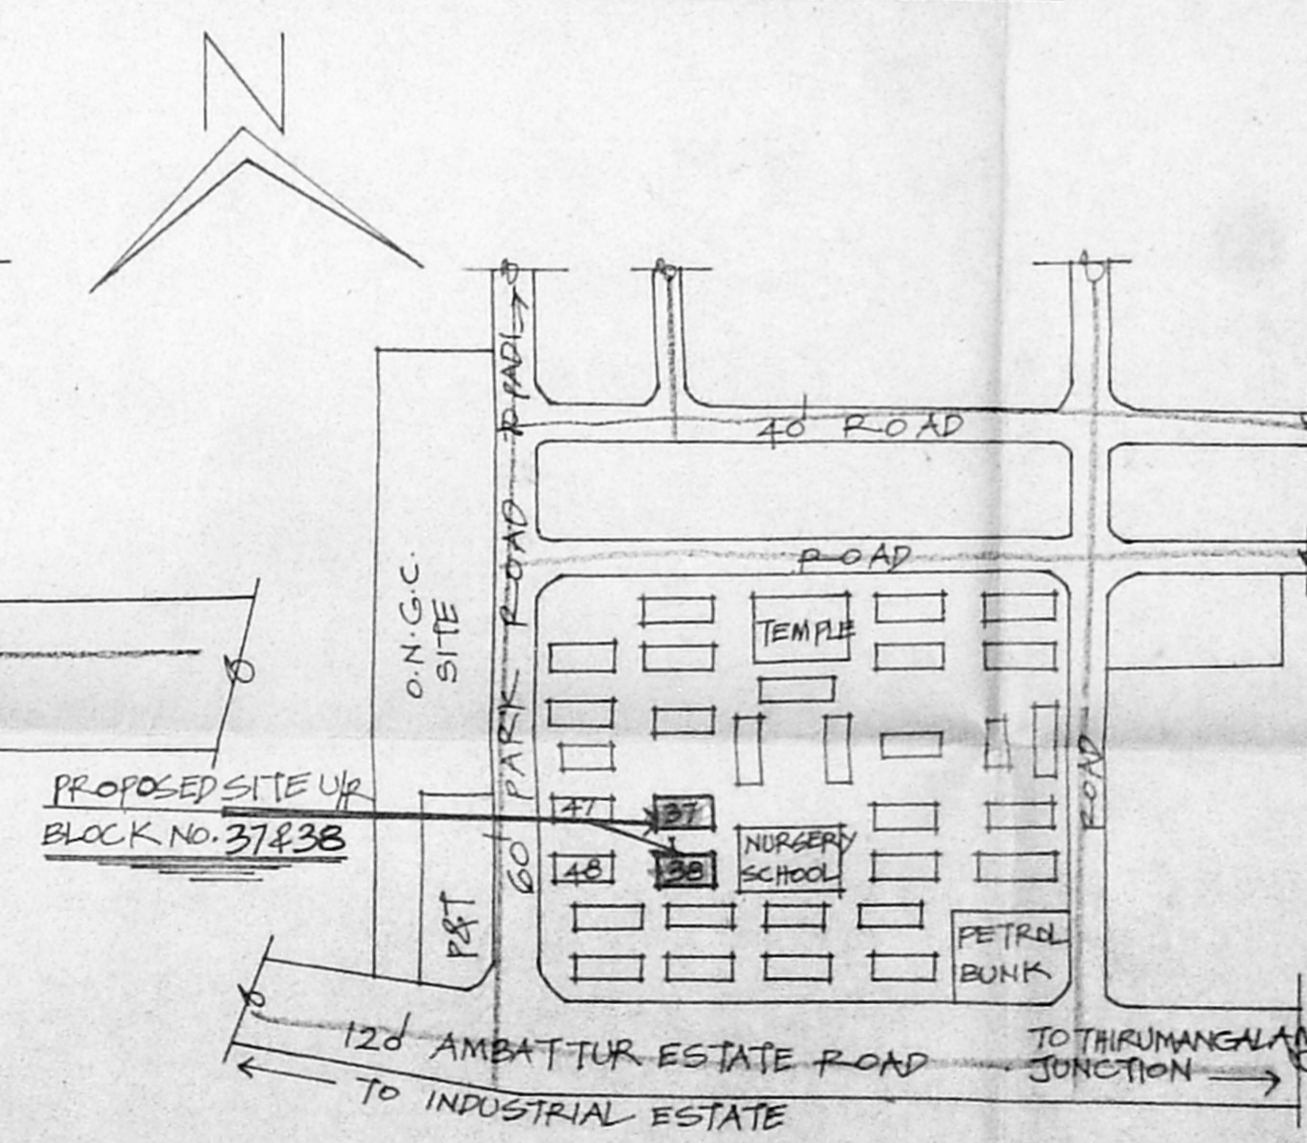 N
60' PARK ROAD TO PADI
40' ROAD
ROAD
O.N.G.C.
SITE
TEMPLE
PROPOSED SITE U/R
BLOCK NO. 37&38
47
37
48
38
NURSERY
SCHOOL
ROAD
P&T
PETROL
BUNK
120' AMBATTUR ESTATE ROAD
TO THIRUMANGALAM
JUNCTION
TO INDUSTRIAL ESTATE